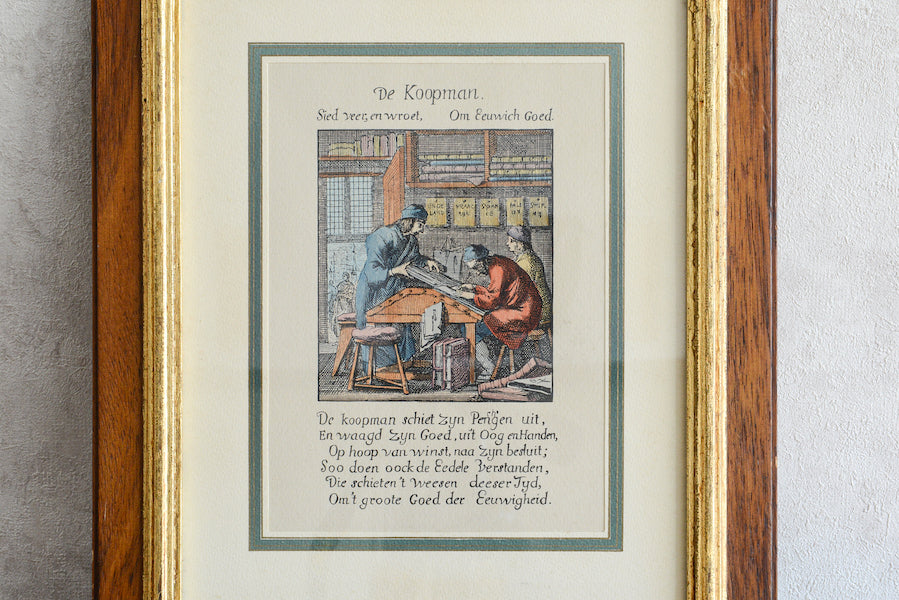 De Koopman.
Sied veer, en wroet, Om Eeuwich Goed.
De koopman schiet Zyn Penn'gen uit,
En waagd Zyn Goed, uit Oog en Handen,
Op hoop van winst, naa Zyn besluit;
Soo doen oock de Eedele Verstanden,
Die schieten't Weesen deeser Tyd,
Om't groote Goed der Eeuwigheid.